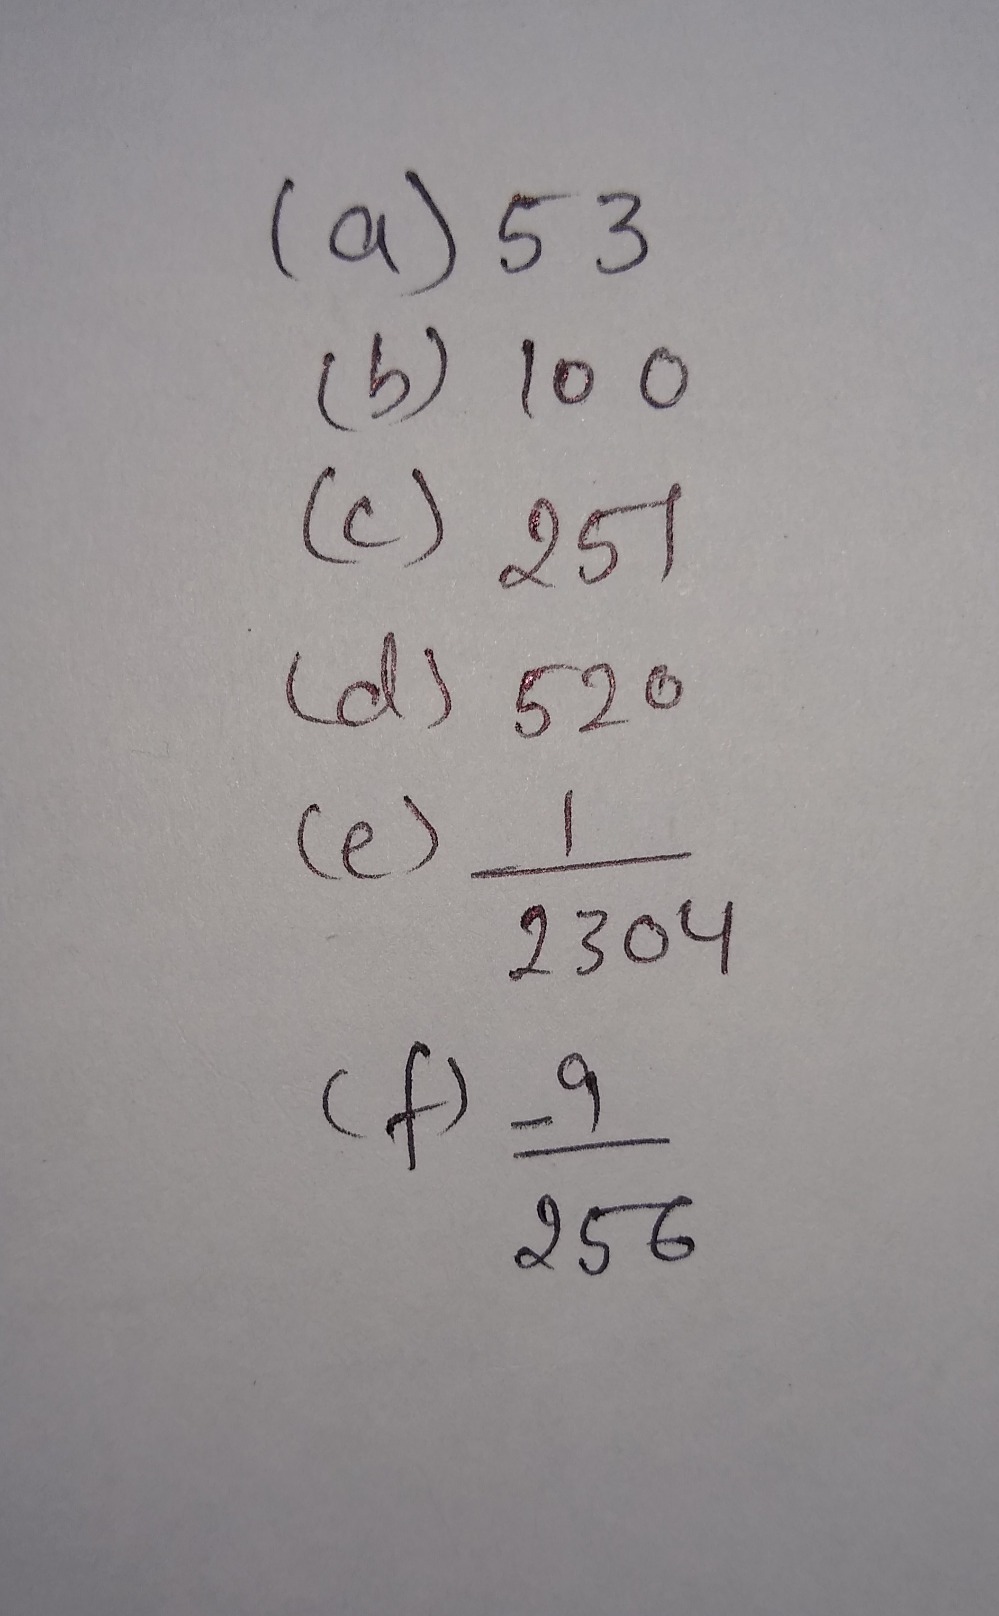 (a) 53
(b) 100
(c) 251
(d) 520
(e) 1
2304
(f) -9
256